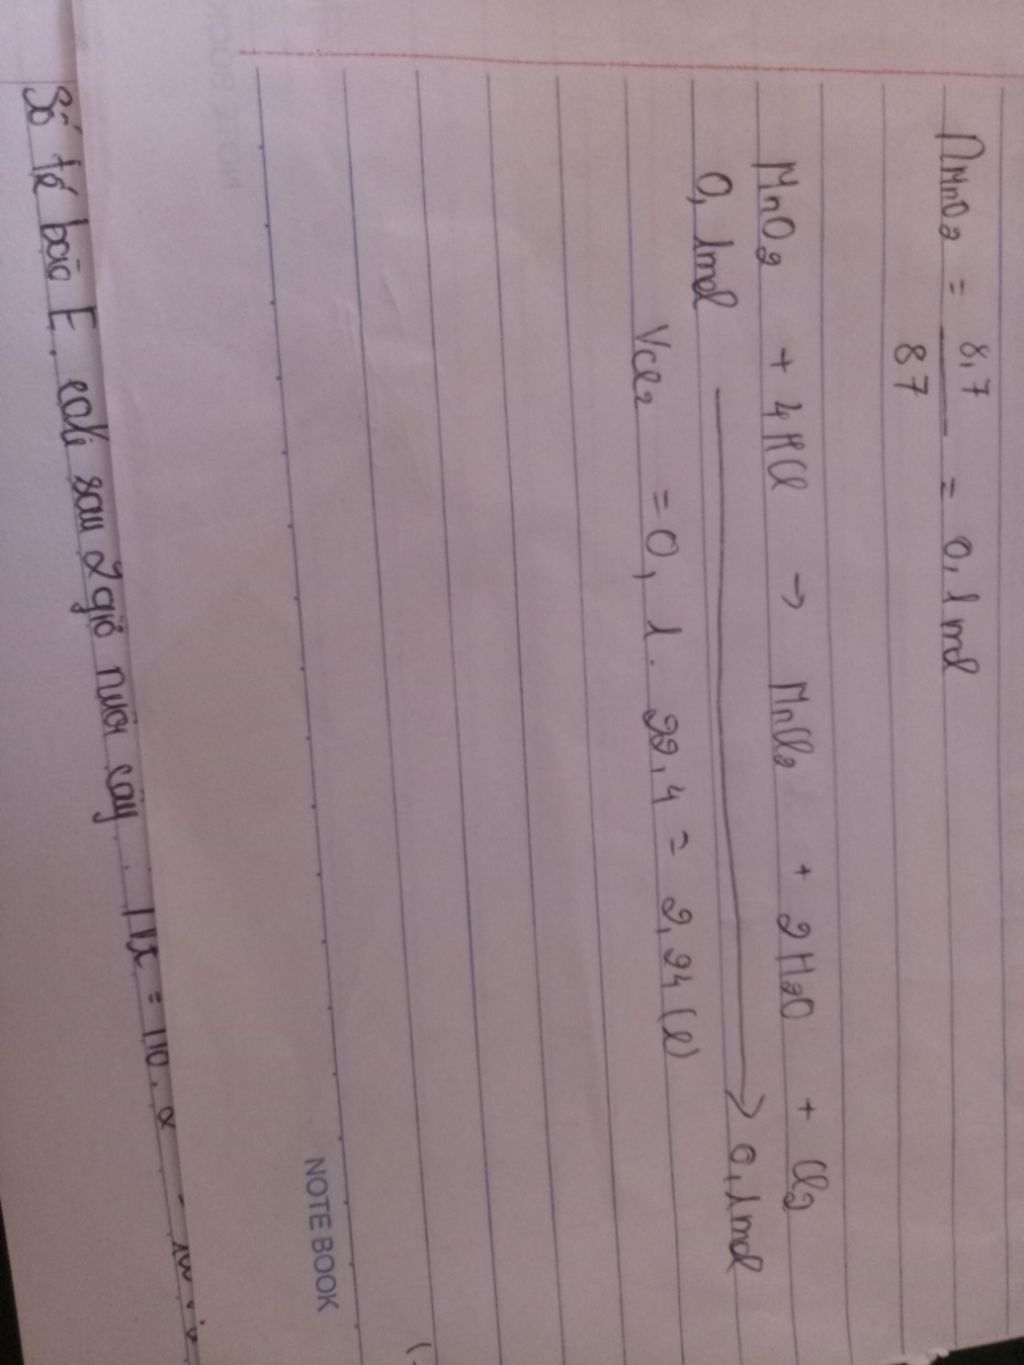 nMnO2 = 8,7 / 87 = 0,1 mol
MnO2 + 4HCl → MnCl2 + 2H2O + Cl2
0,1mol → 0,1mol
VCl2 = 0,1 . 22,4 = 2,24 (l)
NOTE BOOK
Số tế bào E. coli sau 2 giờ nuôi cấy. Nt = N0 . 2